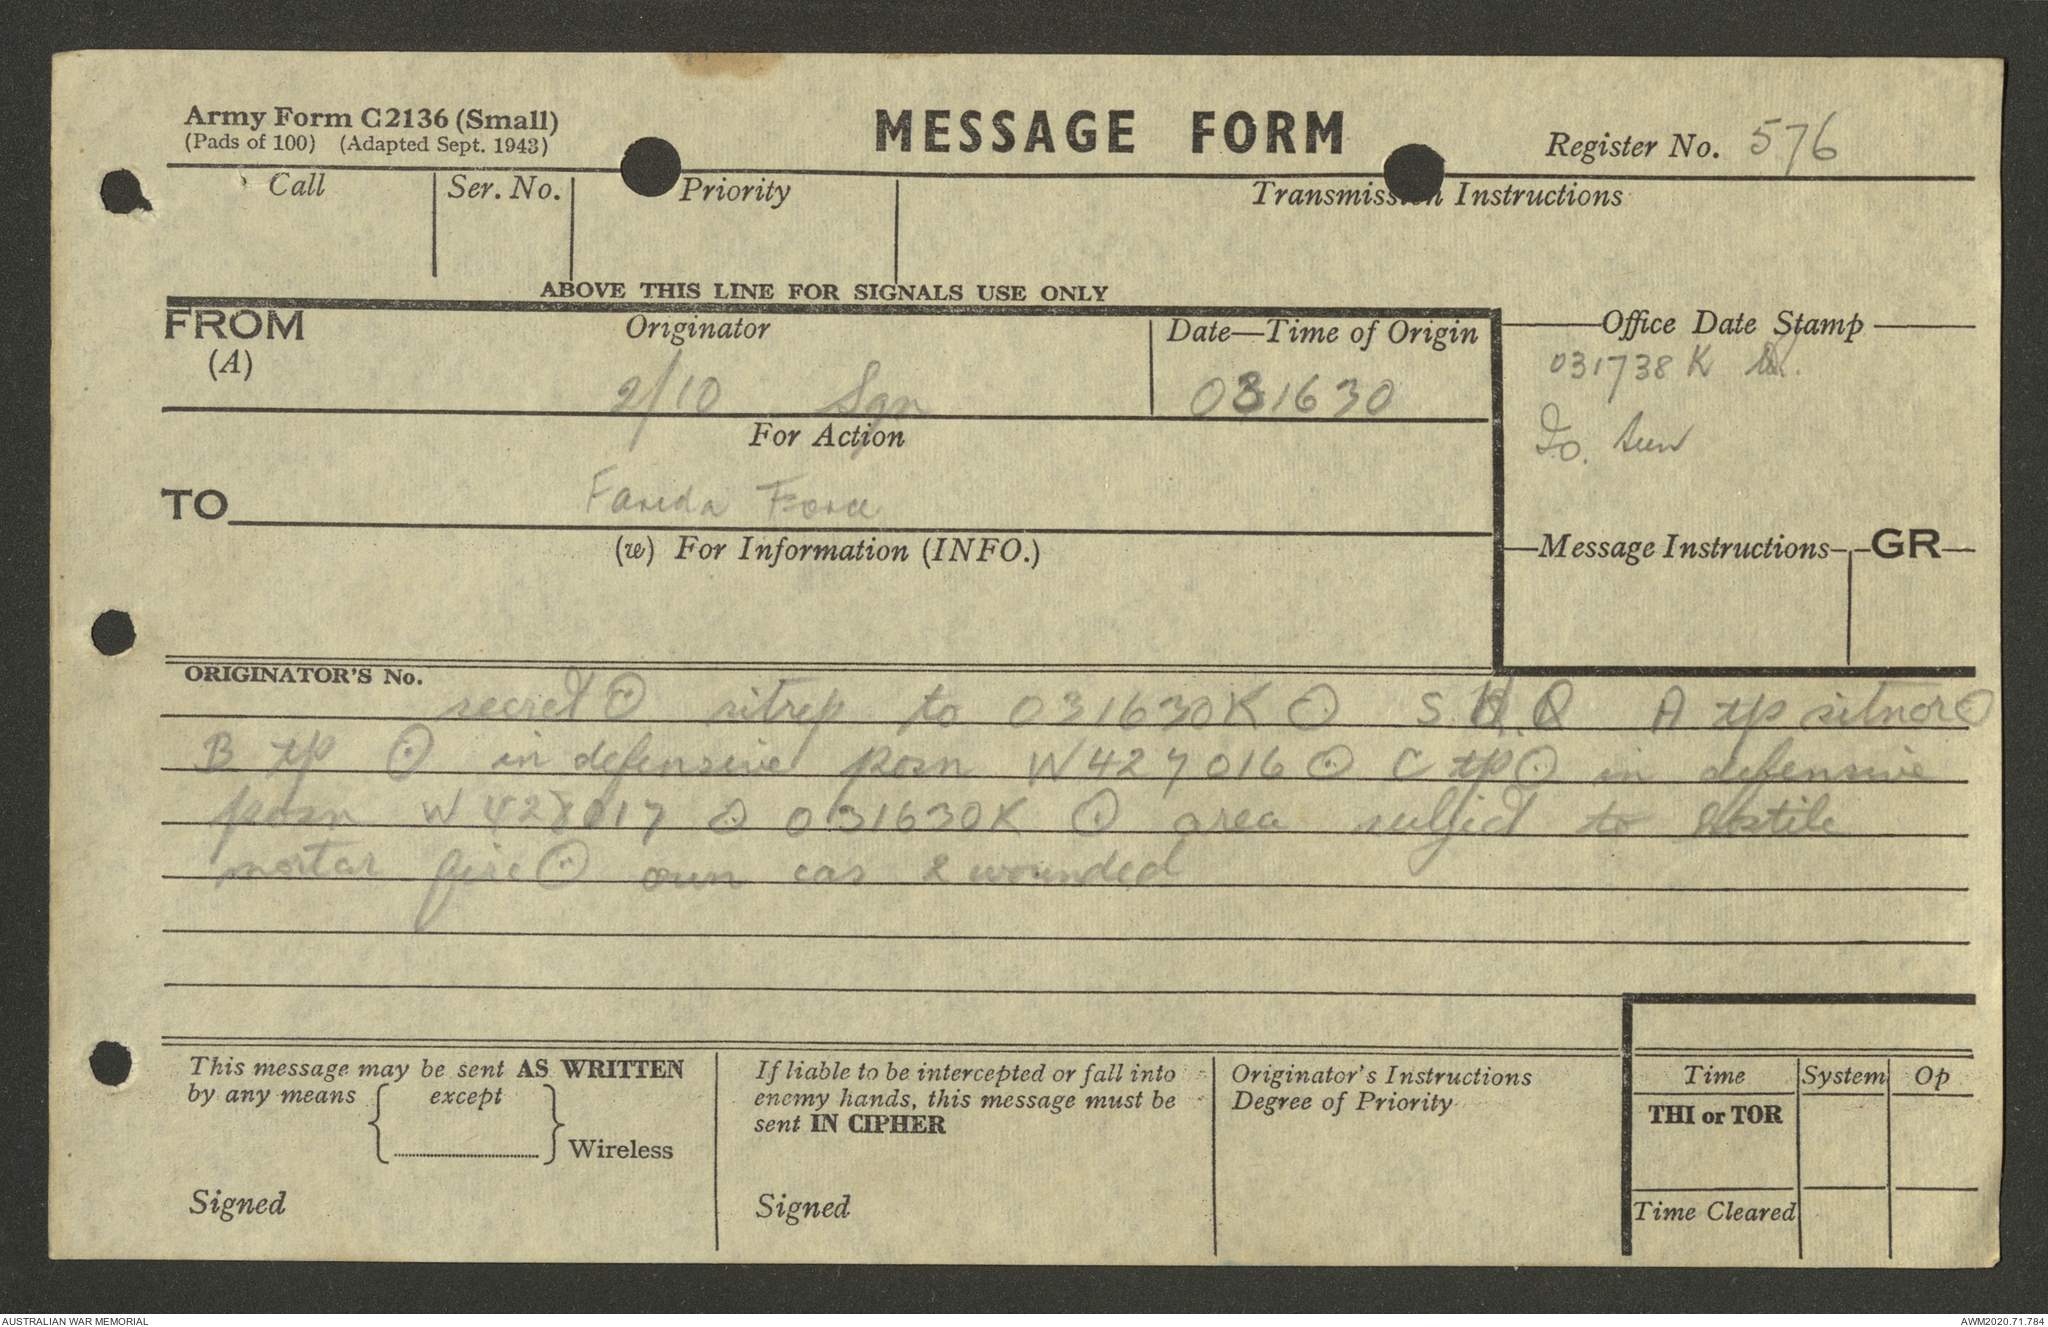 Army Form C2136 (Small)
(Pads of 100) (Adapted Sept. 1943)
MESSAGE FORM
Register No. 576
Call
Ser. No.
Priority
Transmission Instructions
ABOVE THIS LINE FOR SIGNALS USE ONLY
FROM
(A)
Originator
2/10 Sqn
Date—Time of Origin
031630
Office Date Stamp
031738 K
Io.
For Action
TO
Farida Force
(w) For Information (INFO.)
Message Instructions
GR
ORIGINATOR'S No.
secret ⊙ sitrep to 031630K ⊙ S.H.Q A tp sitnor ⊙
B tp ⊙ in defensive posn W427016 ⊙ C tp ⊙ in defensive
posn W428017 ⊙ 031630K ⊙ area subject to hostile
mortar fire ⊙ own cas 2 wounded
This message may be sent AS WRITTEN
by any means { except
} Wireless
Signed
If liable to be intercepted or fall into
enemy hands, this message must be
sent IN CIPHER
Signed
Originator's Instructions
Degree of Priority
Time
System
Op
THI or TOR
Time Cleared
AUSTRALIAN WAR MEMORIAL
AWM2020.71.784